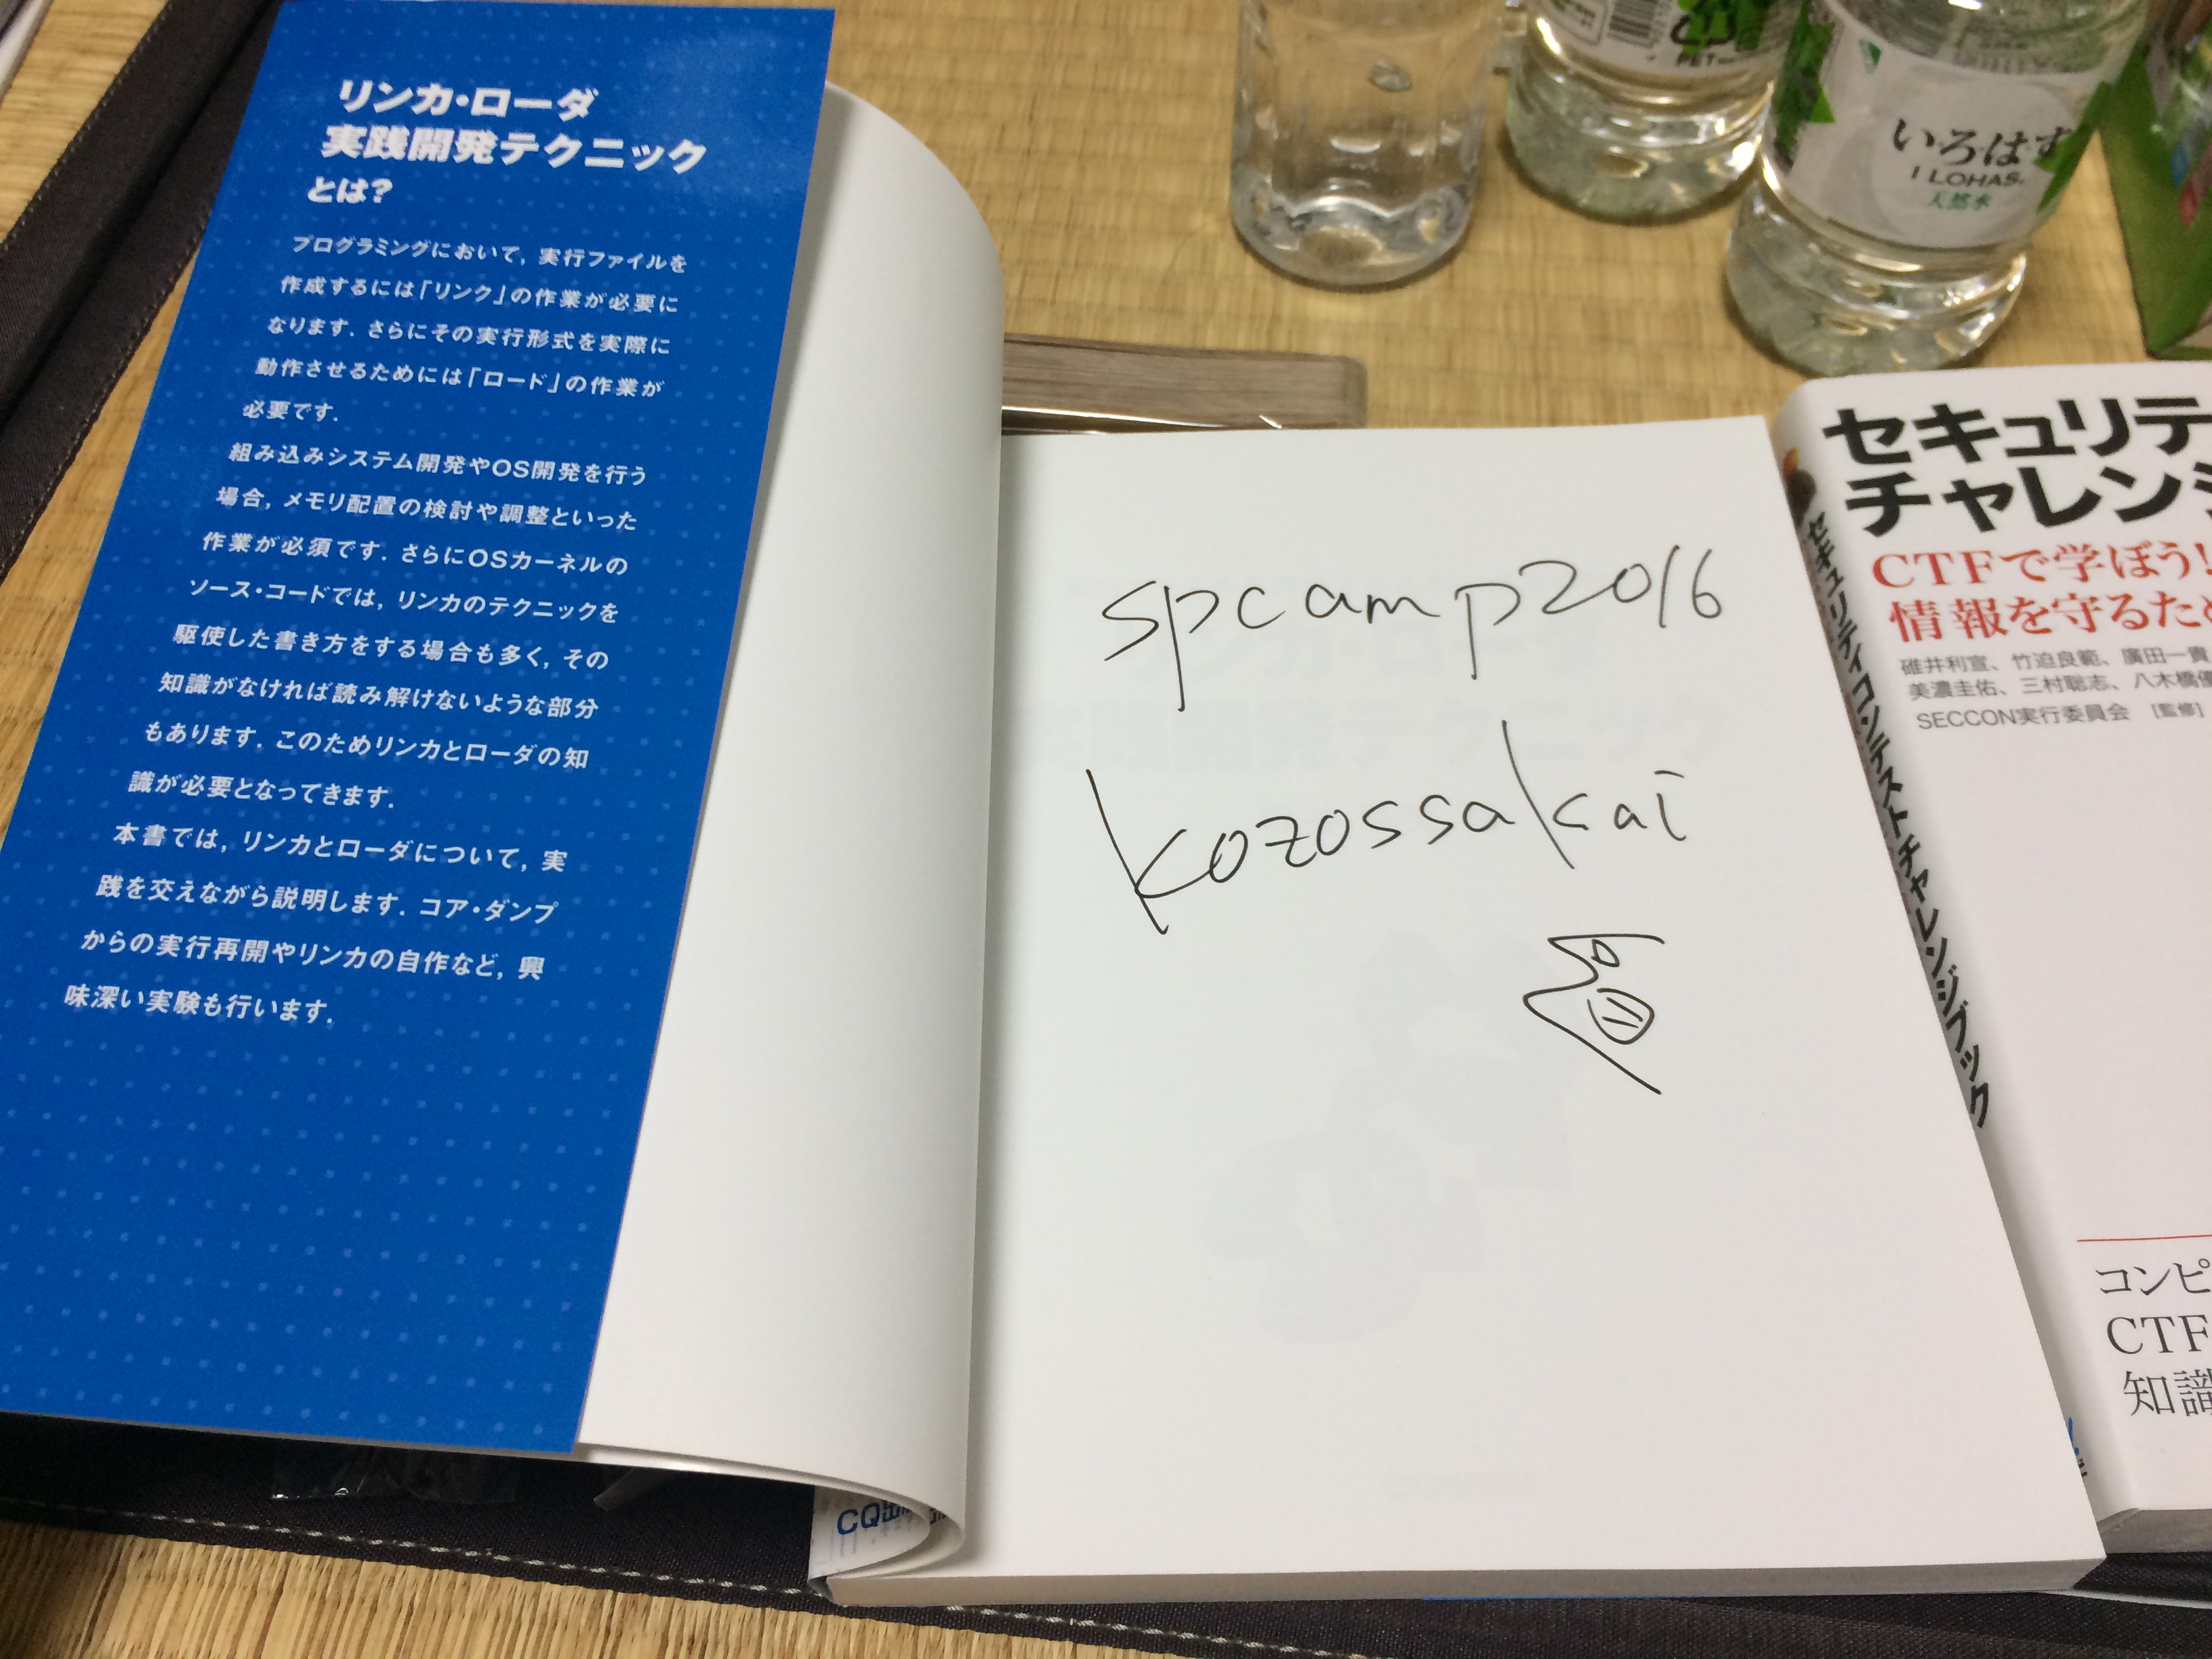 リンカ・ローダ
実践開発テクニック
とは?
プログラミングにおいて, 実行ファイルを
作成するには「リンク」の作業が必要に
なります. さらにその実行形式を実際に
動作させるためには「ロード」の作業が
必要です.
組み込みシステム開発やOS開発を行う
場合, メモリ配置の検討や調整といった
作業が必須です. さらにOSカーネルの
ソース・コードでは, リンカのテクニックを
駆使した書き方をする場合も多く, その
知識がなければ読み解けないような部分
もあります. このためリンカとローダの知
識が必要となってきます.
本書では, リンカとローダについて, 実
践を交えながら説明します. コア・ダンプ
からの実行再開やリンカの自作など, 興
味深い実験も行います.
CQ出
spcamp2016
kozossakai
PET
いろはす
I LOHAS.
天然水
セキュリテ
チャレンジ
CTFで学ぼう!
情報を守るため
碓井利宣、竹迫良範、廣田一貴
美濃圭佑、三村聡志、八木橋優
SECCON実行委員会 [監修]
セキュリティコンテストチャレンジブック
コンピ
CTF
知識